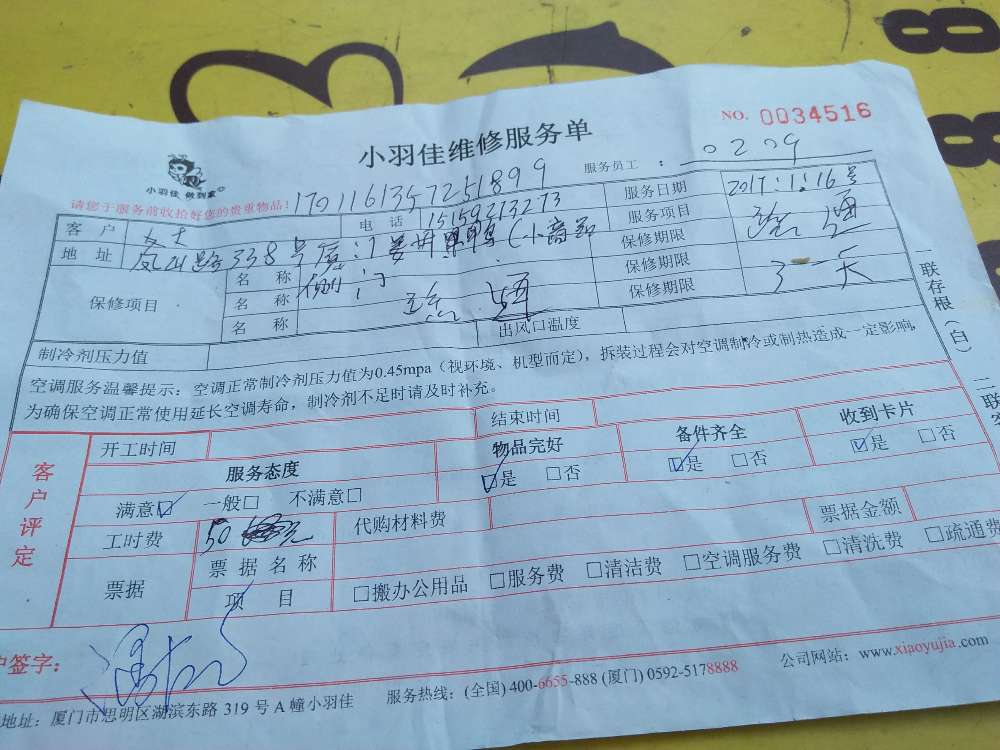 小羽佳维修服务单
NO. 0034516
小羽佳 做到家
请您于服务前收拾好您的贵重物品!
17011613457251899
服务员工： 0209
客户 女士 电话 15159213273 服务日期 2017.1.16号
地址 凤山路338号 服务项目 疏通
保修项目 名称 侧门 保修期限
名称 疏通 保修期限
名称 保修期限 天
制冷剂压力值 出风口温度
空调服务温馨提示：空调正常制冷剂压力值为0.45mpa（视环境、机型而定），拆装过程会对空调制冷或制热造成一定影响，
为确保空调正常使用延长空调寿命，制冷剂不足时请及时补充。
一联存根（白）
二联客
客户评定
开工时间 结束时间
服务态度 物品完好 备件齐全 收到卡片
满意☑ 一般□ 不满意□ ☑是 □否 ☑是 □否 ☑是 □否
工时费 50 元 代购材料费 票据金额
票据 票据名称
项目 □搬办公用品 □服务费 □清洁费 □空调服务费 □清洗费 □疏通费
户签字：
地址：厦门市思明区湖滨东路 319 号 A 幢小羽佳 服务热线：(全国) 400-6655-888 (厦门) 0592-5178888 公司网站：www.xiaoyujia.com
8
8